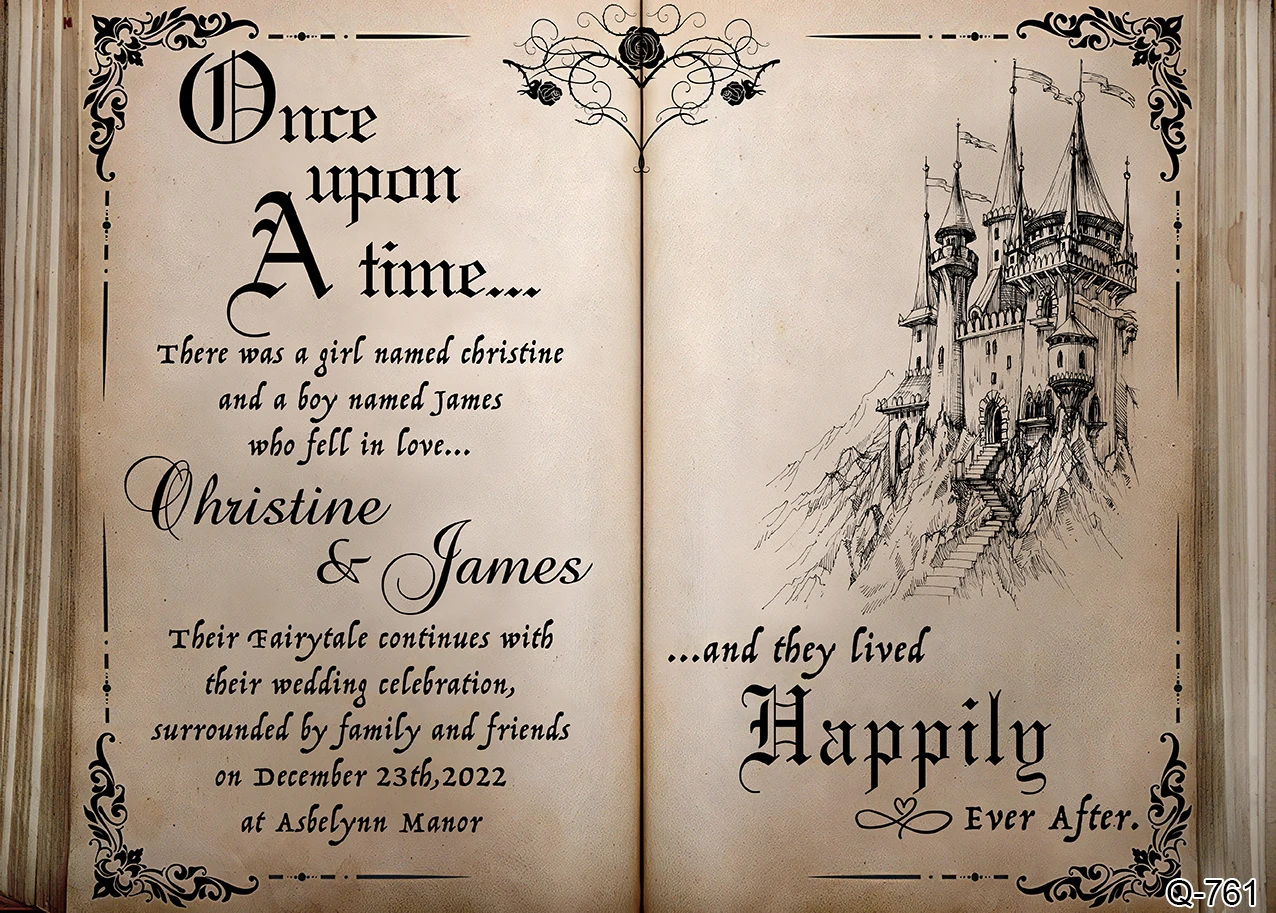 Once
upon
A time...
There was a girl named christine
and a boy named James
who fell in love...
Christine
& James
Their Fairytale continues with
their wedding celebration,
surrounded by family and friends
on December 23th,2022
at Asbelynn Manor
...and they lived
Happily
Ever After.
Q-761